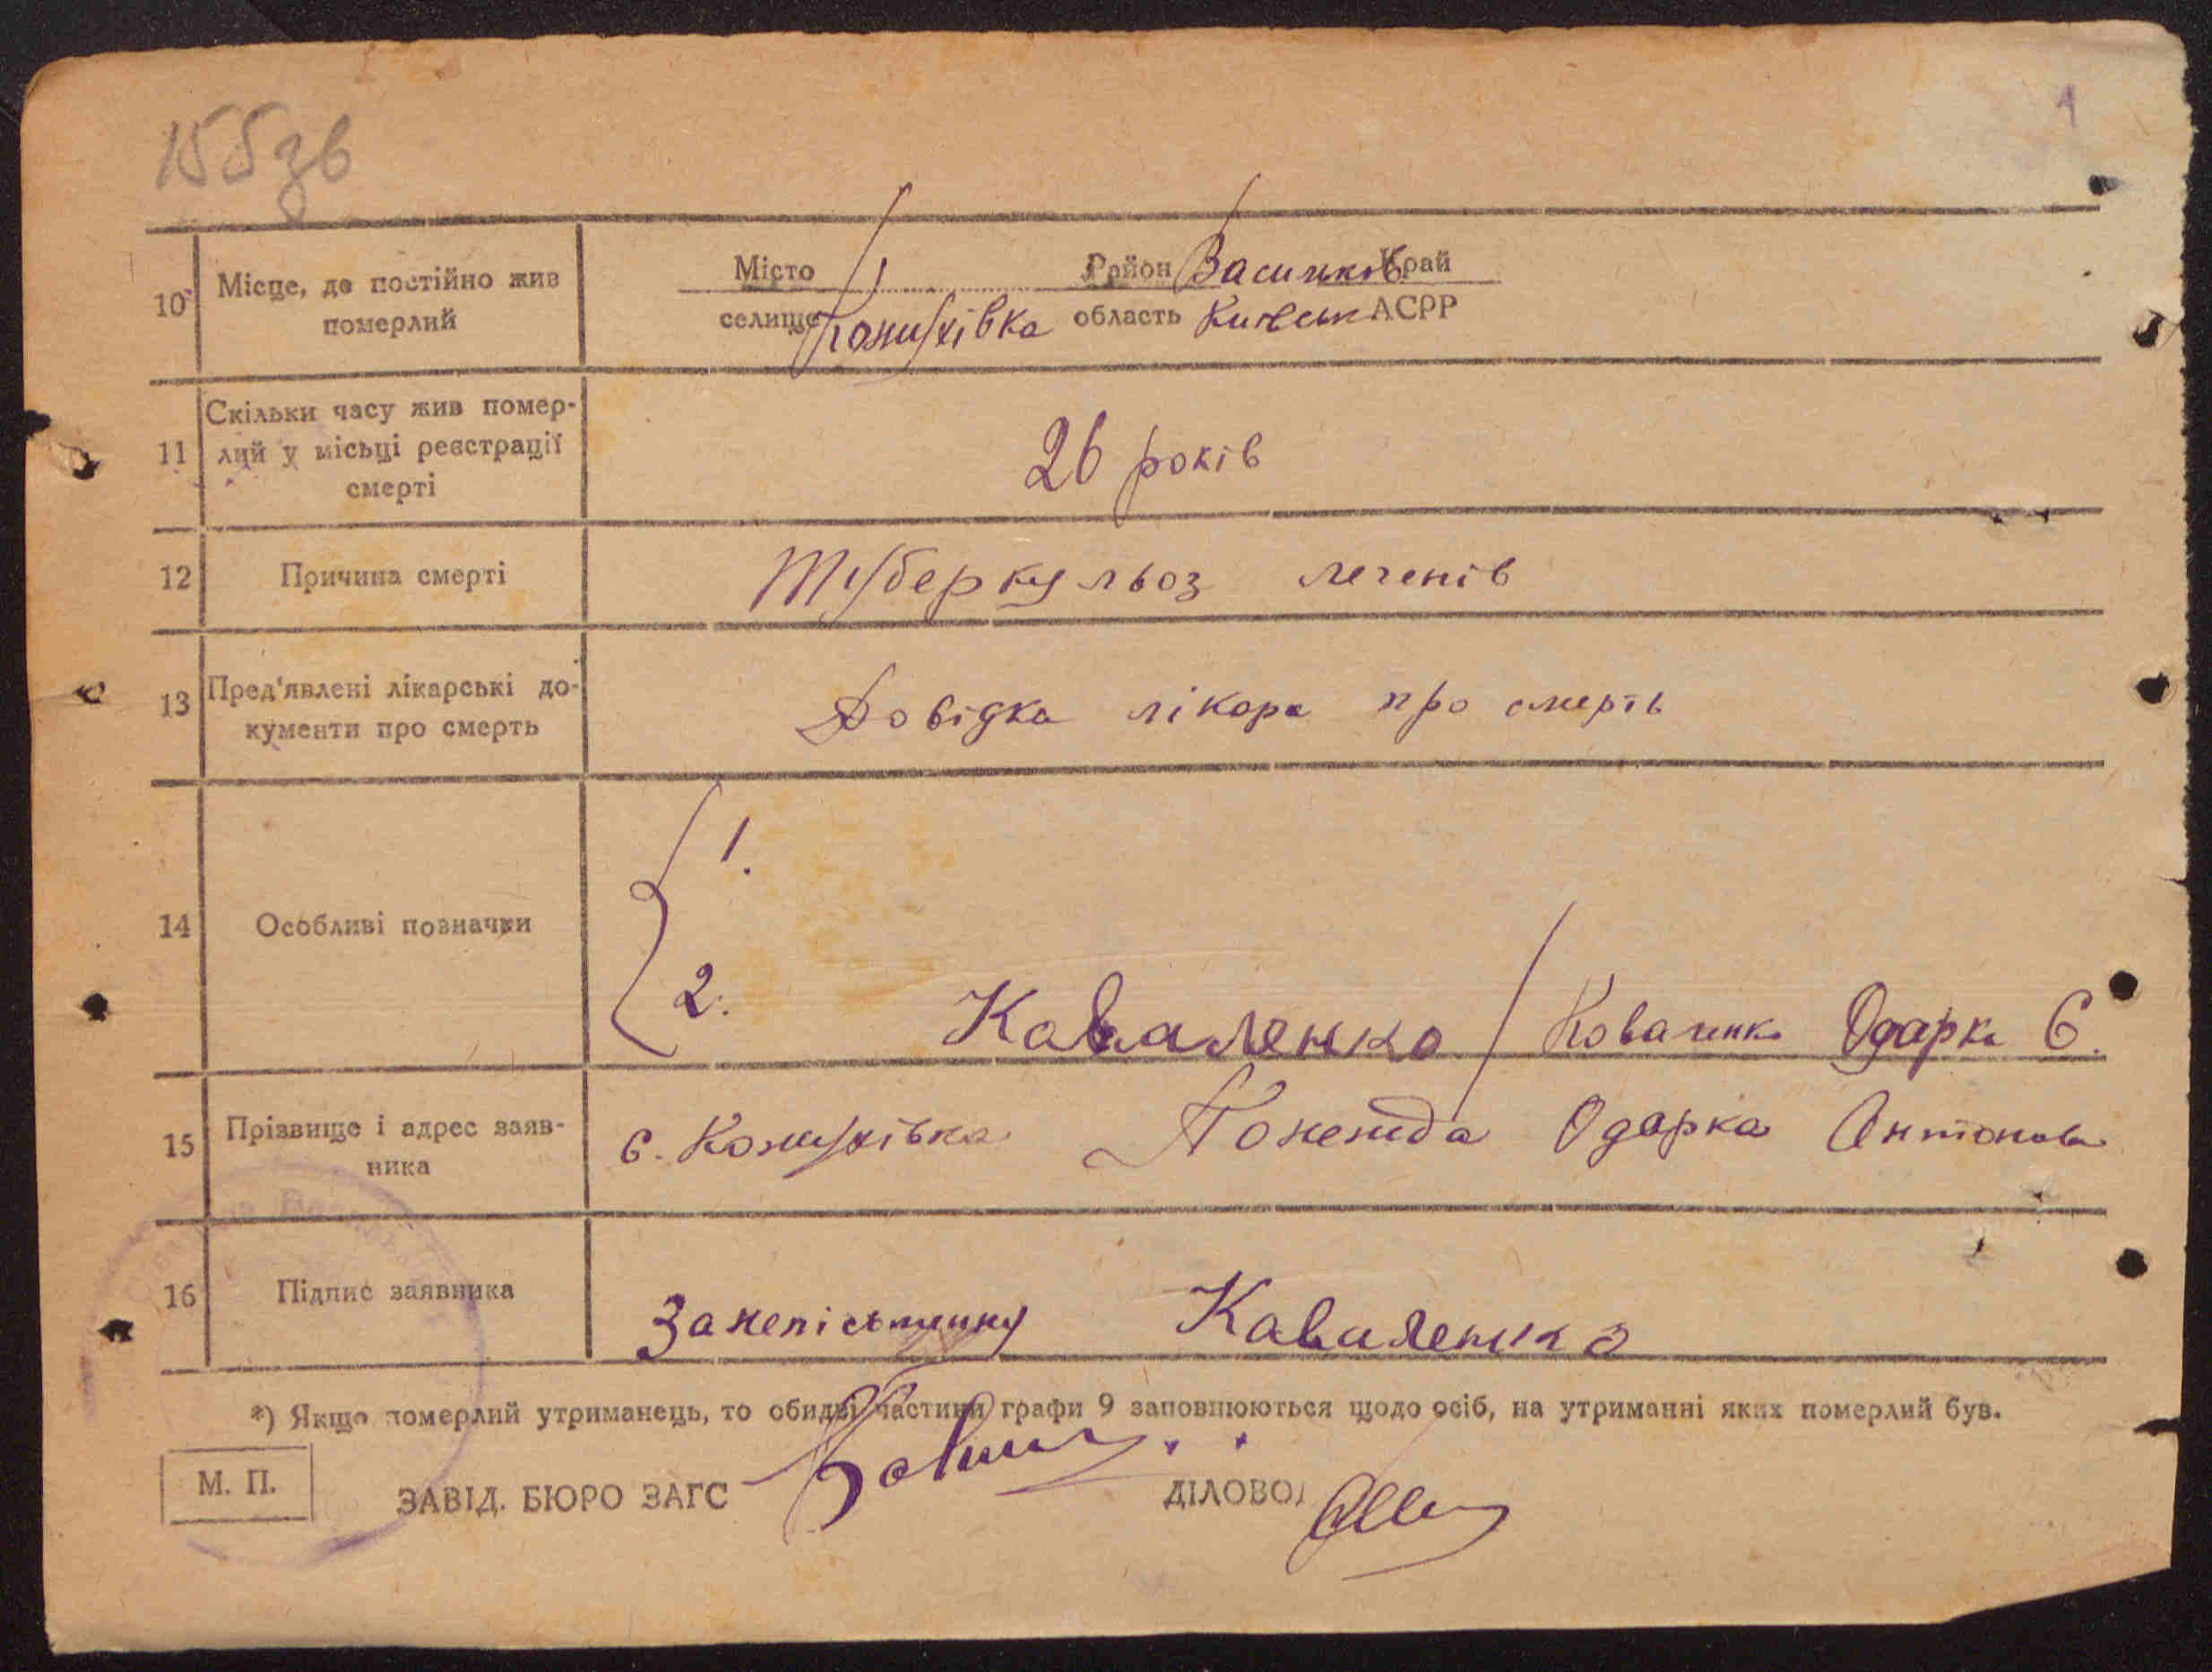 155зв
1
10 Місце, де постійно жив померлий
Місто Район Васильків Край
селище Кожухівка область Київськ АСРР
11 Скільки часу жив помер-
лий у місьці реєстрації
смерті
26 років
12 Причина смерті Туберкульоз легенів
13 Пред'явлені лікарські до-
кументи про смерть
Довідка лікара про смерть
1.
14 Особливі позначки
2. Каваленко / Коваленко Одарка Є.
15 Прізвище і адрес заяв-
ника
с. Кожухівка Одарка Антонов
16 Підпис заявника За непісьменну Каваленко
*) Якщо померлий утриманець, то обидві частини графи 9 заповнюються щодо осіб, на утриманні яких померлий був.
М. П. ЗАВІД. БЮРО ЗАГС ДІЛОВОД